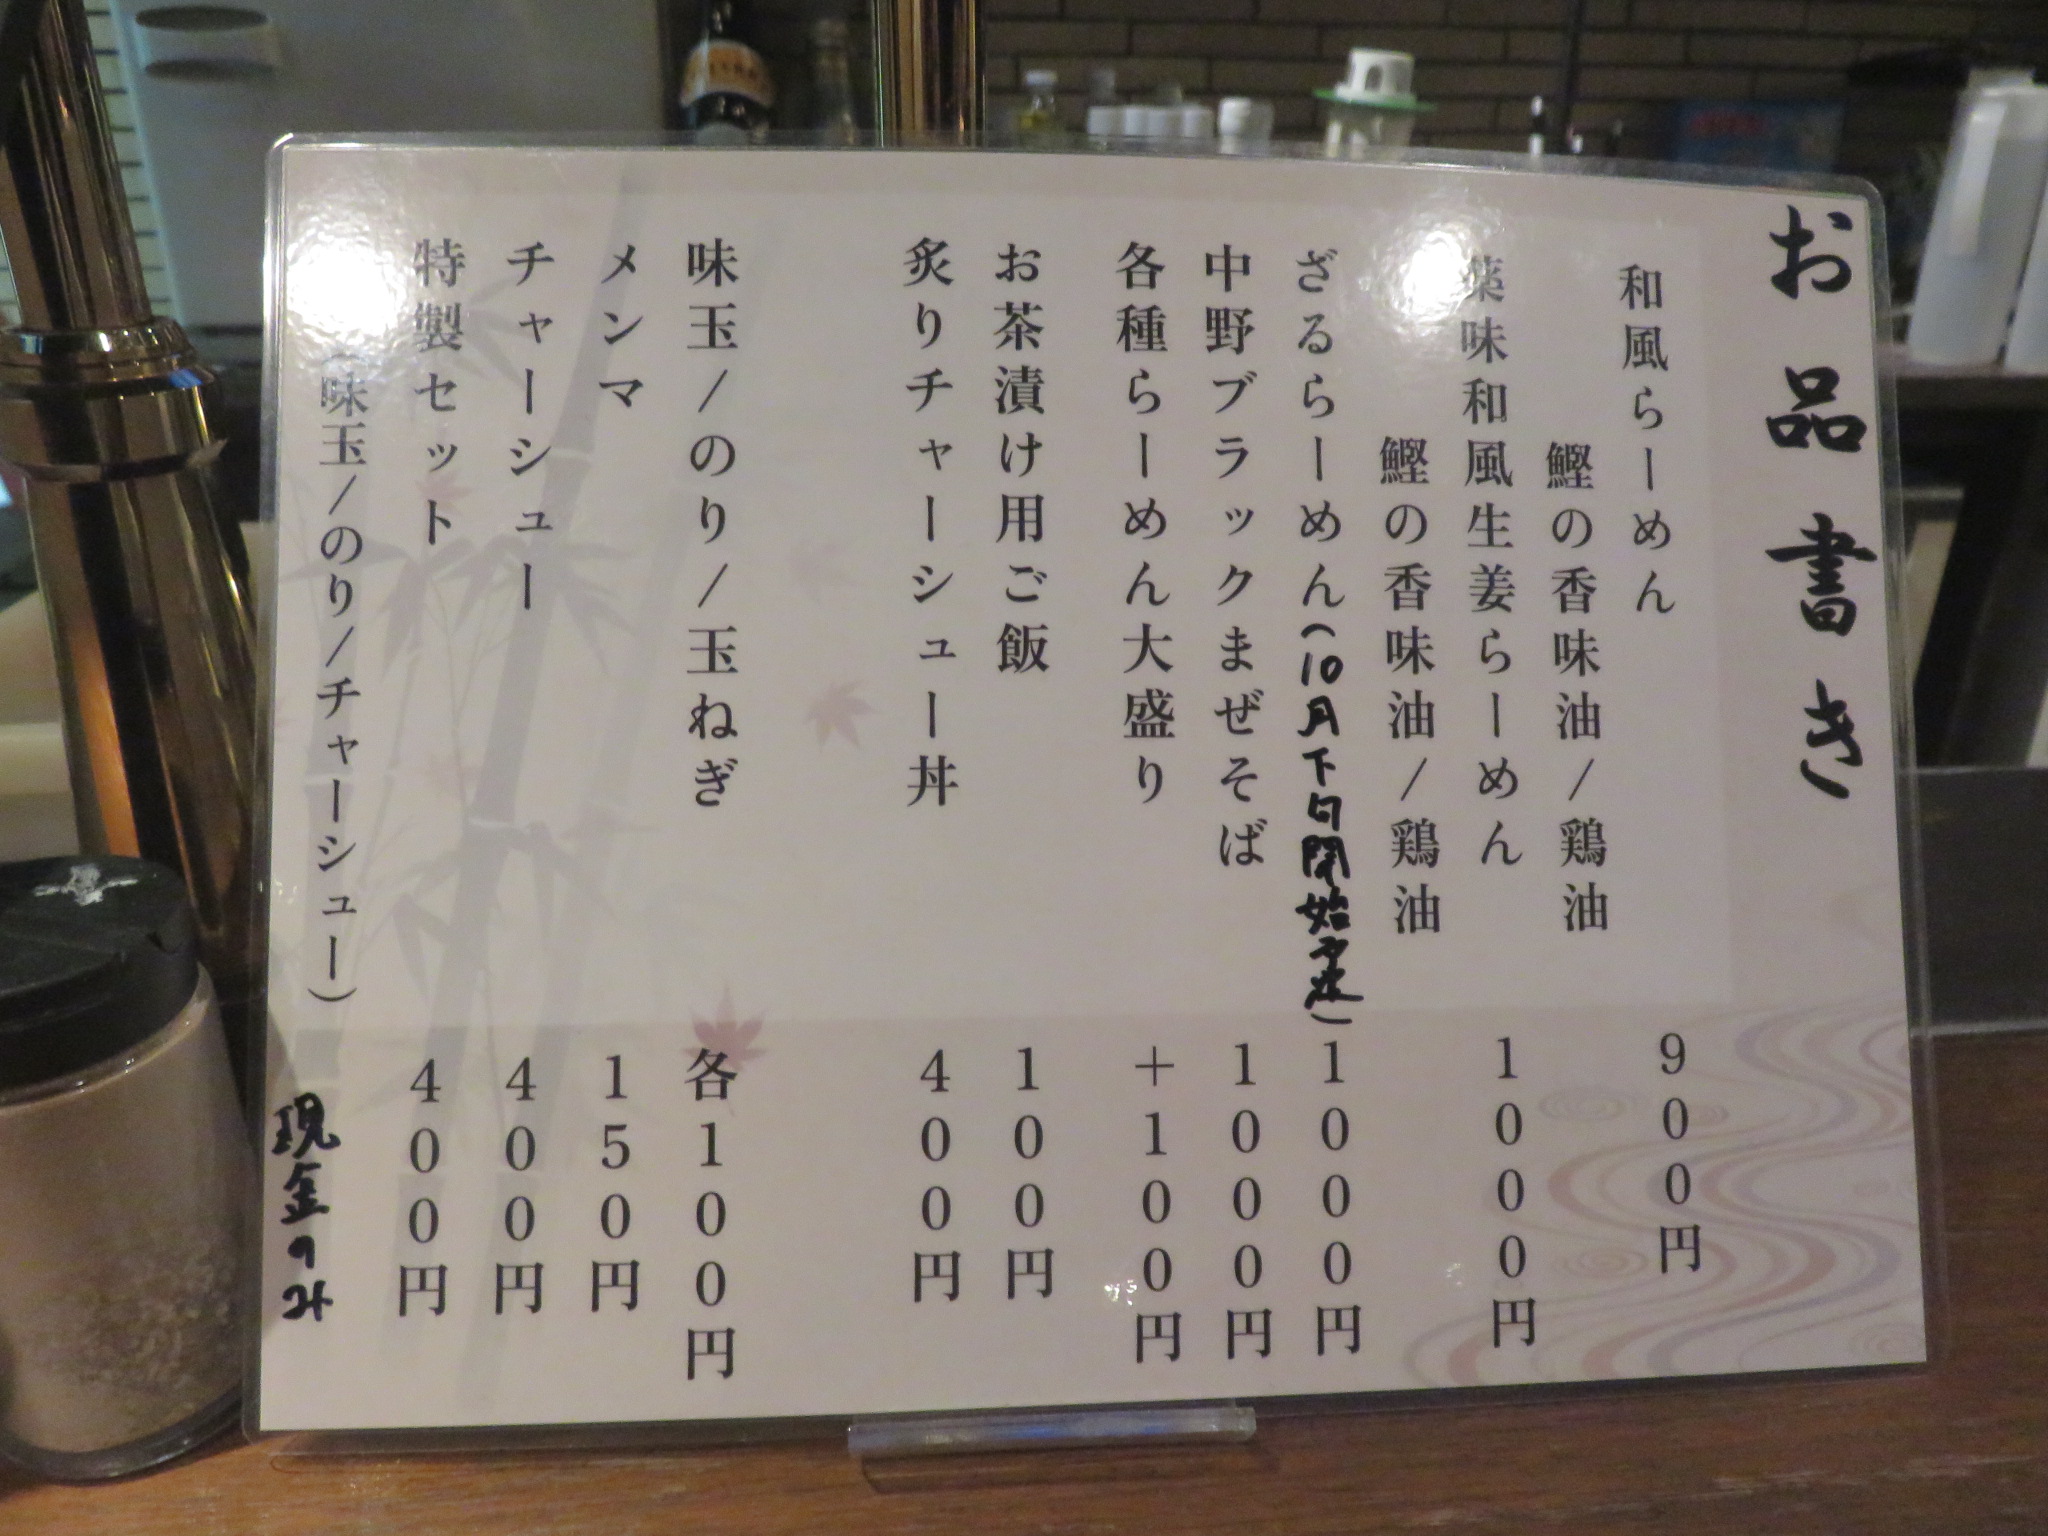 お品書き
和風らーめん 900円
鰹の香味油/鶏油
薬味和風生姜らーめん 1000円
鰹の香味油/鶏油
ざるらーめん(10月下旬開始予定) 1000円
中野ブラックまぜそば 1000円
各種らーめん大盛り +100円
お茶漬け用ご飯 100円
炙りチャーシュー丼 400円
味玉/のり/玉ねぎ 各100円
メンマ 150円
チャーシュー 400円
特製セット 400円
味玉/のり/チャーシュー)
現金のみ